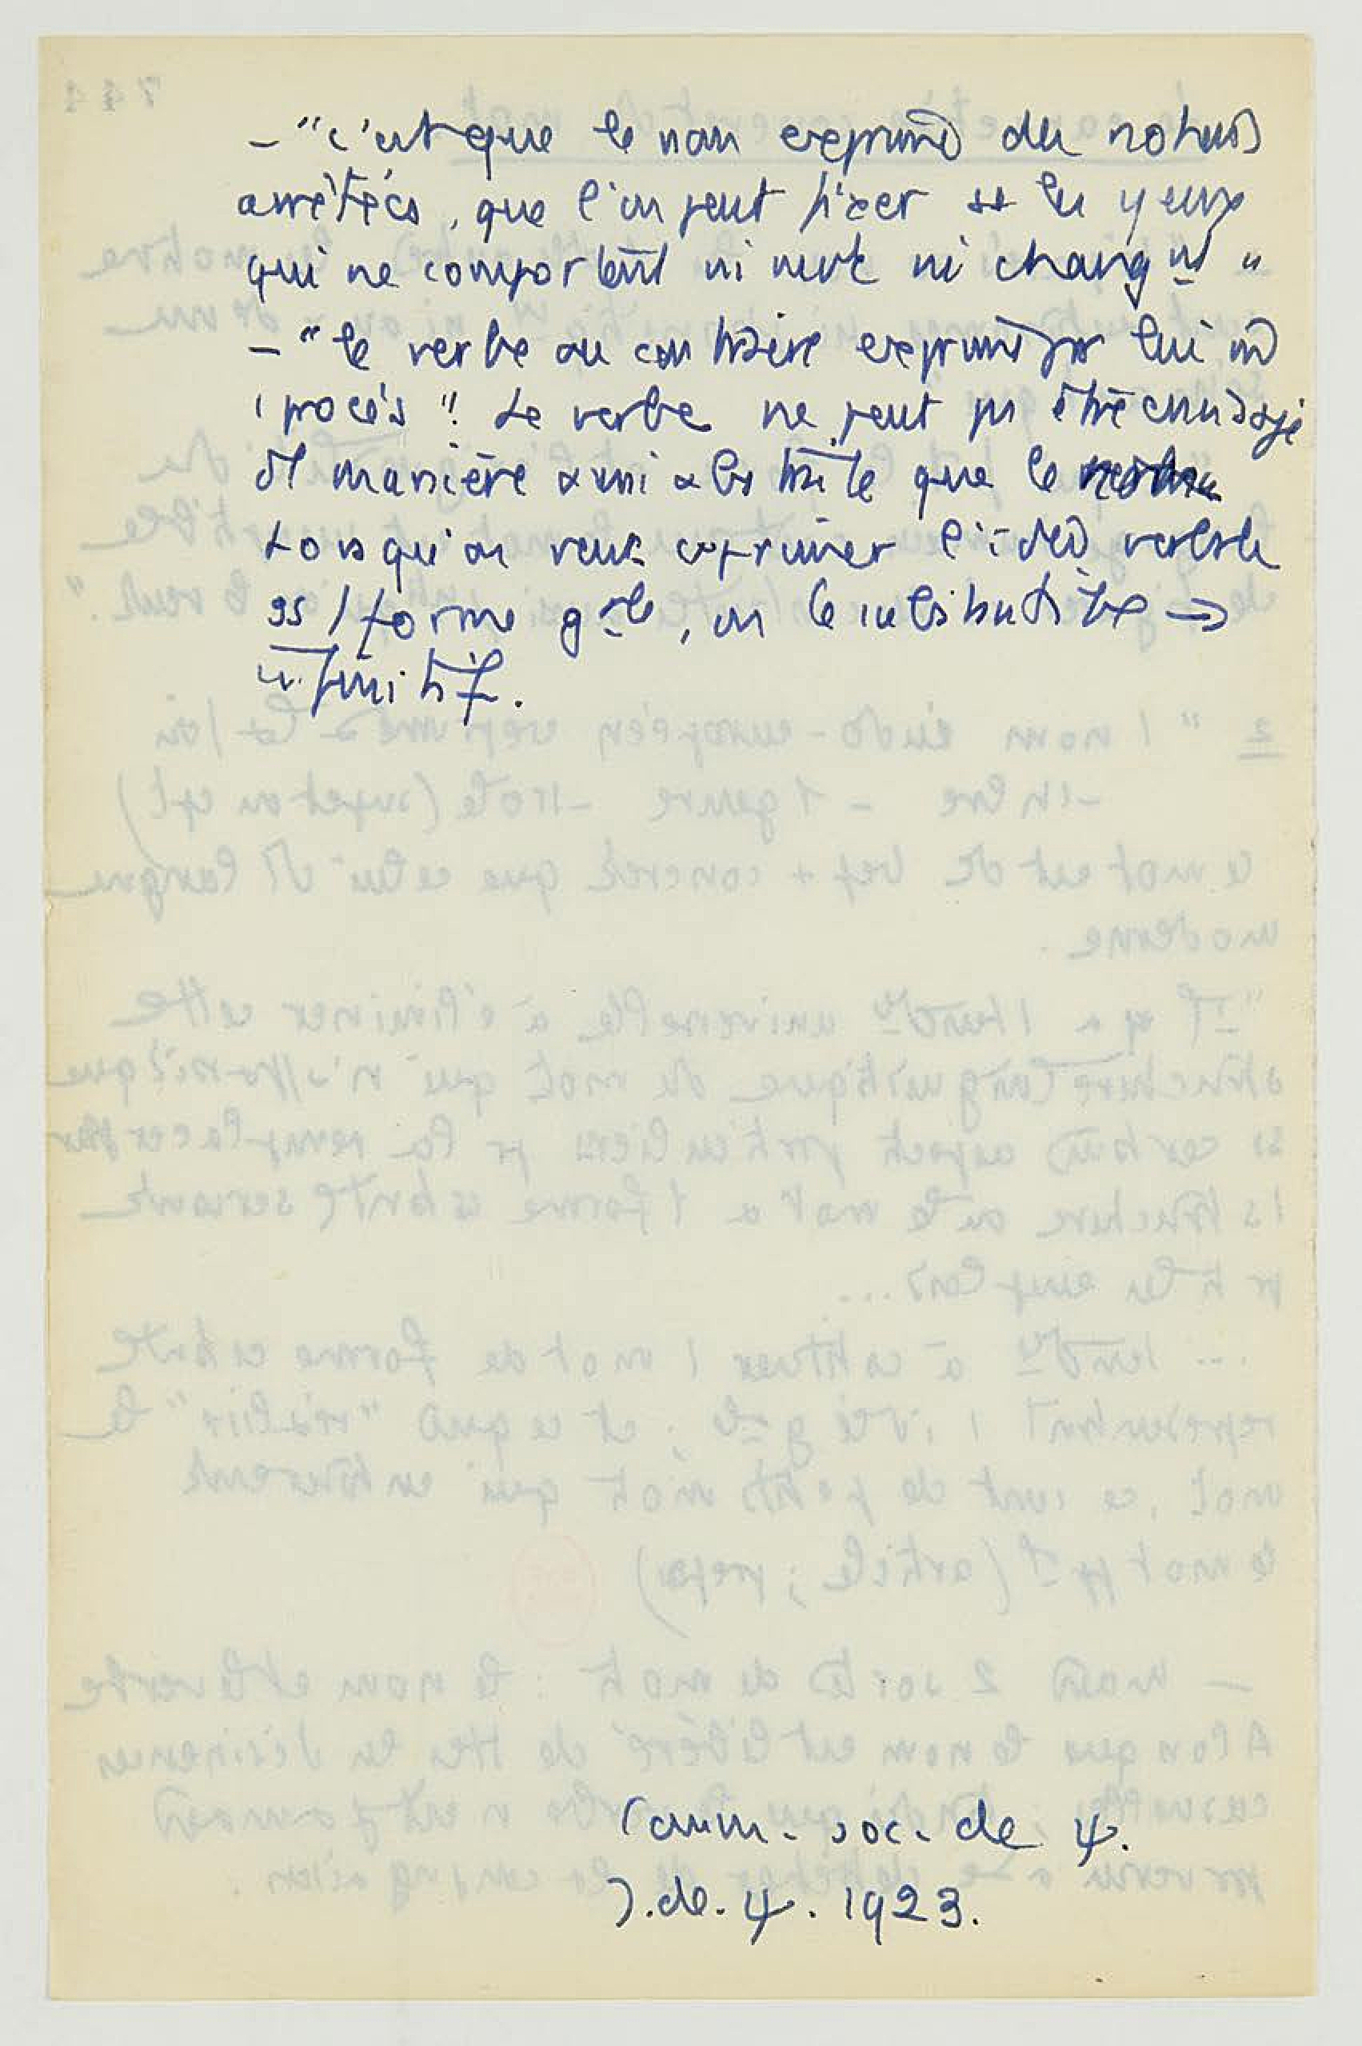 — "c'est que le nom exprime des notions
arrêtées, que l'on peut fixer ss les yeux
qui ne comportent ni mvt ni changnt "
— " le verbe au contraire exprime par lui m̂
1 procès ". Le verbe ne peut pas être envisagé
de manière aussi abstraite que le
Lorsqu'on veut exprimer l'idée verbale
ss 1 forme gale, on le substantive →
infinitif.
Comm. soc. de ψ.
J. de. ψ. 1923.